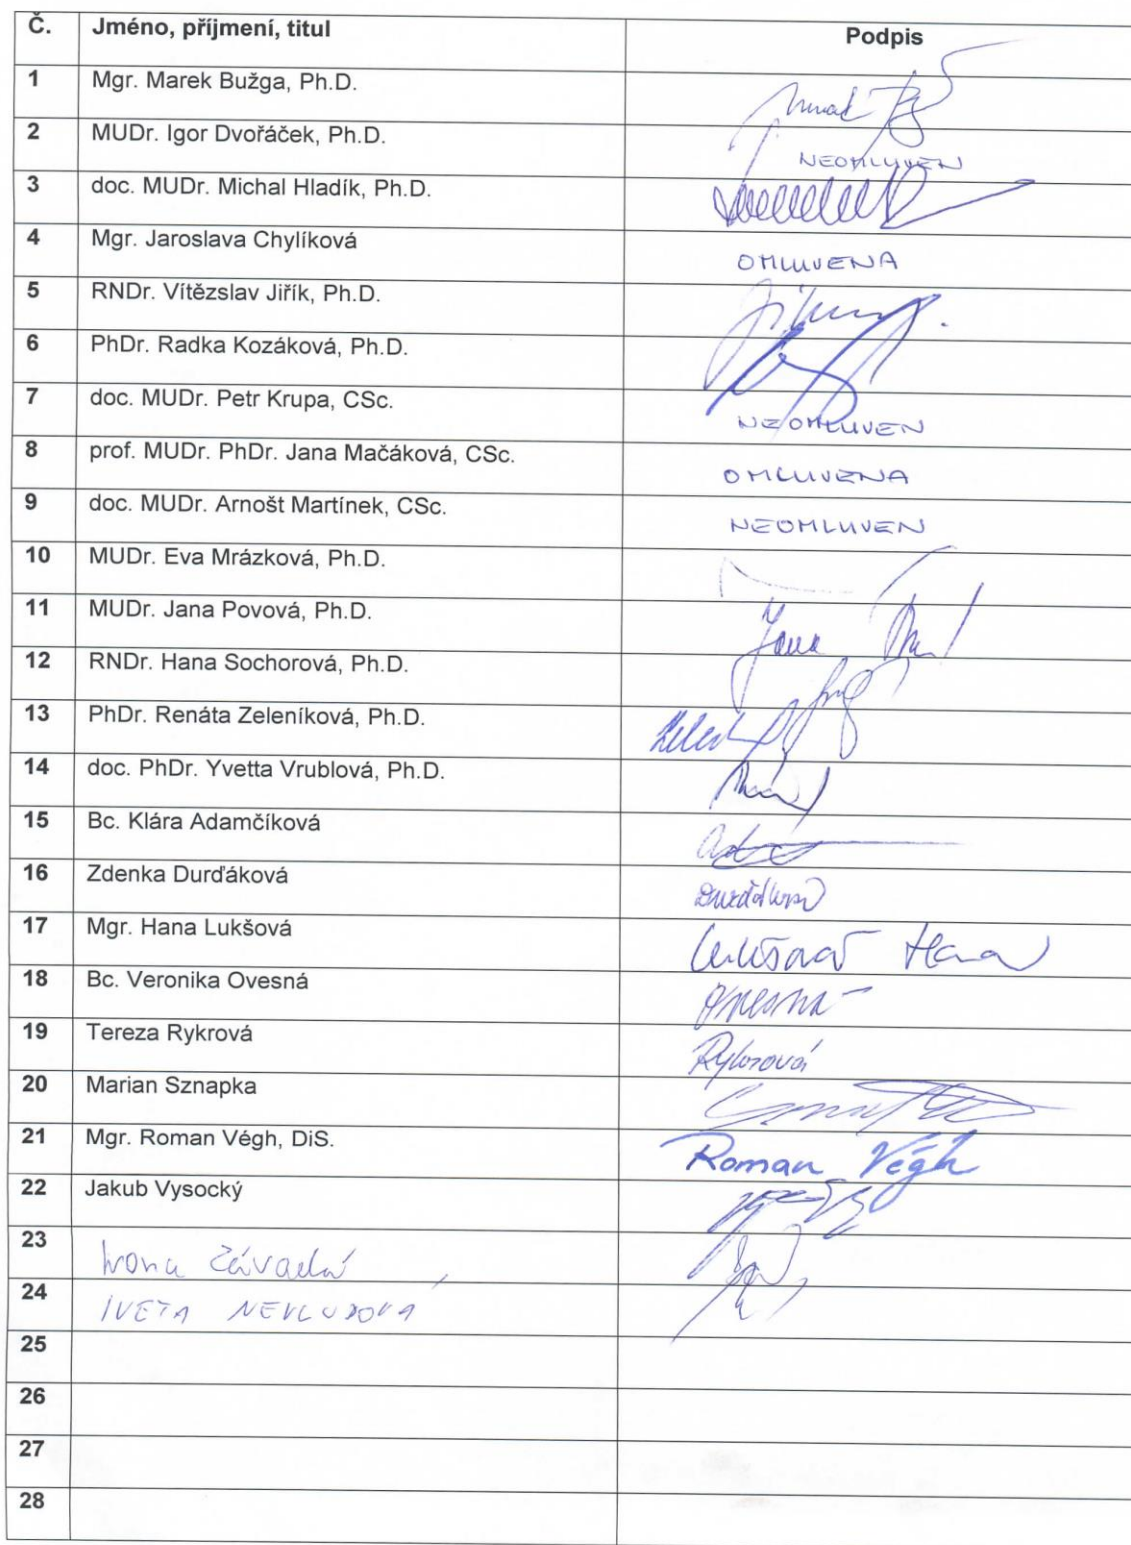 Č. Jméno, příjmení, titul Podpis
1 Mgr. Marek Bužga, Ph.D.
2 MUDr. Igor Dvořáček, Ph.D. NEOMLUVEN
3 doc. MUDr. Michal Hladík, Ph.D.
4 Mgr. Jaroslava Chylíková OMLUVENA
5 RNDr. Vítězslav Jiřík, Ph.D.
6 PhDr. Radka Kozáková, Ph.D.
7 doc. MUDr. Petr Krupa, CSc. NEOMLUVEN
8 prof. MUDr. PhDr. Jana Mačáková, CSc. OMLUVENA
9 doc. MUDr. Arnošt Martínek, CSc. NEOMLUVEN
10 MUDr. Eva Mrázková, Ph.D.
11 MUDr. Jana Povová, Ph.D. Jana
12 RNDr. Hana Sochorová, Ph.D.
13 PhDr. Renáta Zeleníková, Ph.D.
14 doc. PhDr. Yvetta Vrublová, Ph.D.
15 Bc. Klára Adamčíková
16 Zdenka Durďáková Durďáková
17 Mgr. Hana Lukšová Lukšová Hana
18 Bc. Veronika Ovesná Ovesná
19 Tereza Rykrová Rykrová
20 Marian Sznapka
21 Mgr. Roman Végh, DiS. Roman Végh
22 Jakub Vysocký
23 Ivona Závadná
24 IVETA
25
26
27
28